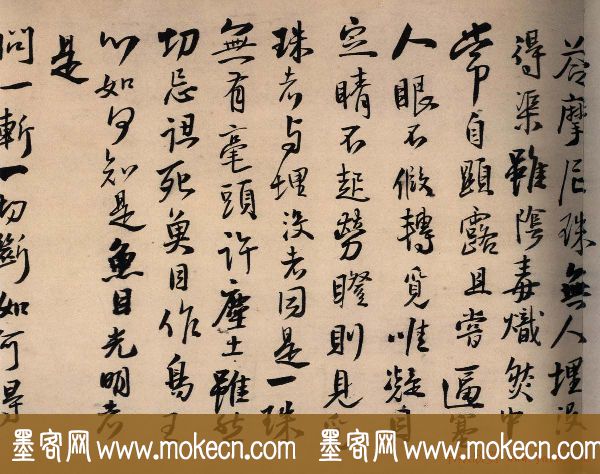 答摩尼珠無人埋没
得渠雖陰毒熾然中
常自顯露且嘗逼塞
人眼不假轉覓唯凝目
定睛不起勞瞪則見
珠者与埋没者同是一珠
無有毫頭許塵土雖然
切忌誤死魚目作鳥王
以如何知是魚目光明者
是
問一斬一切斷如何是
墨客网www.mokecn.com 墨客网www.mokecn.com